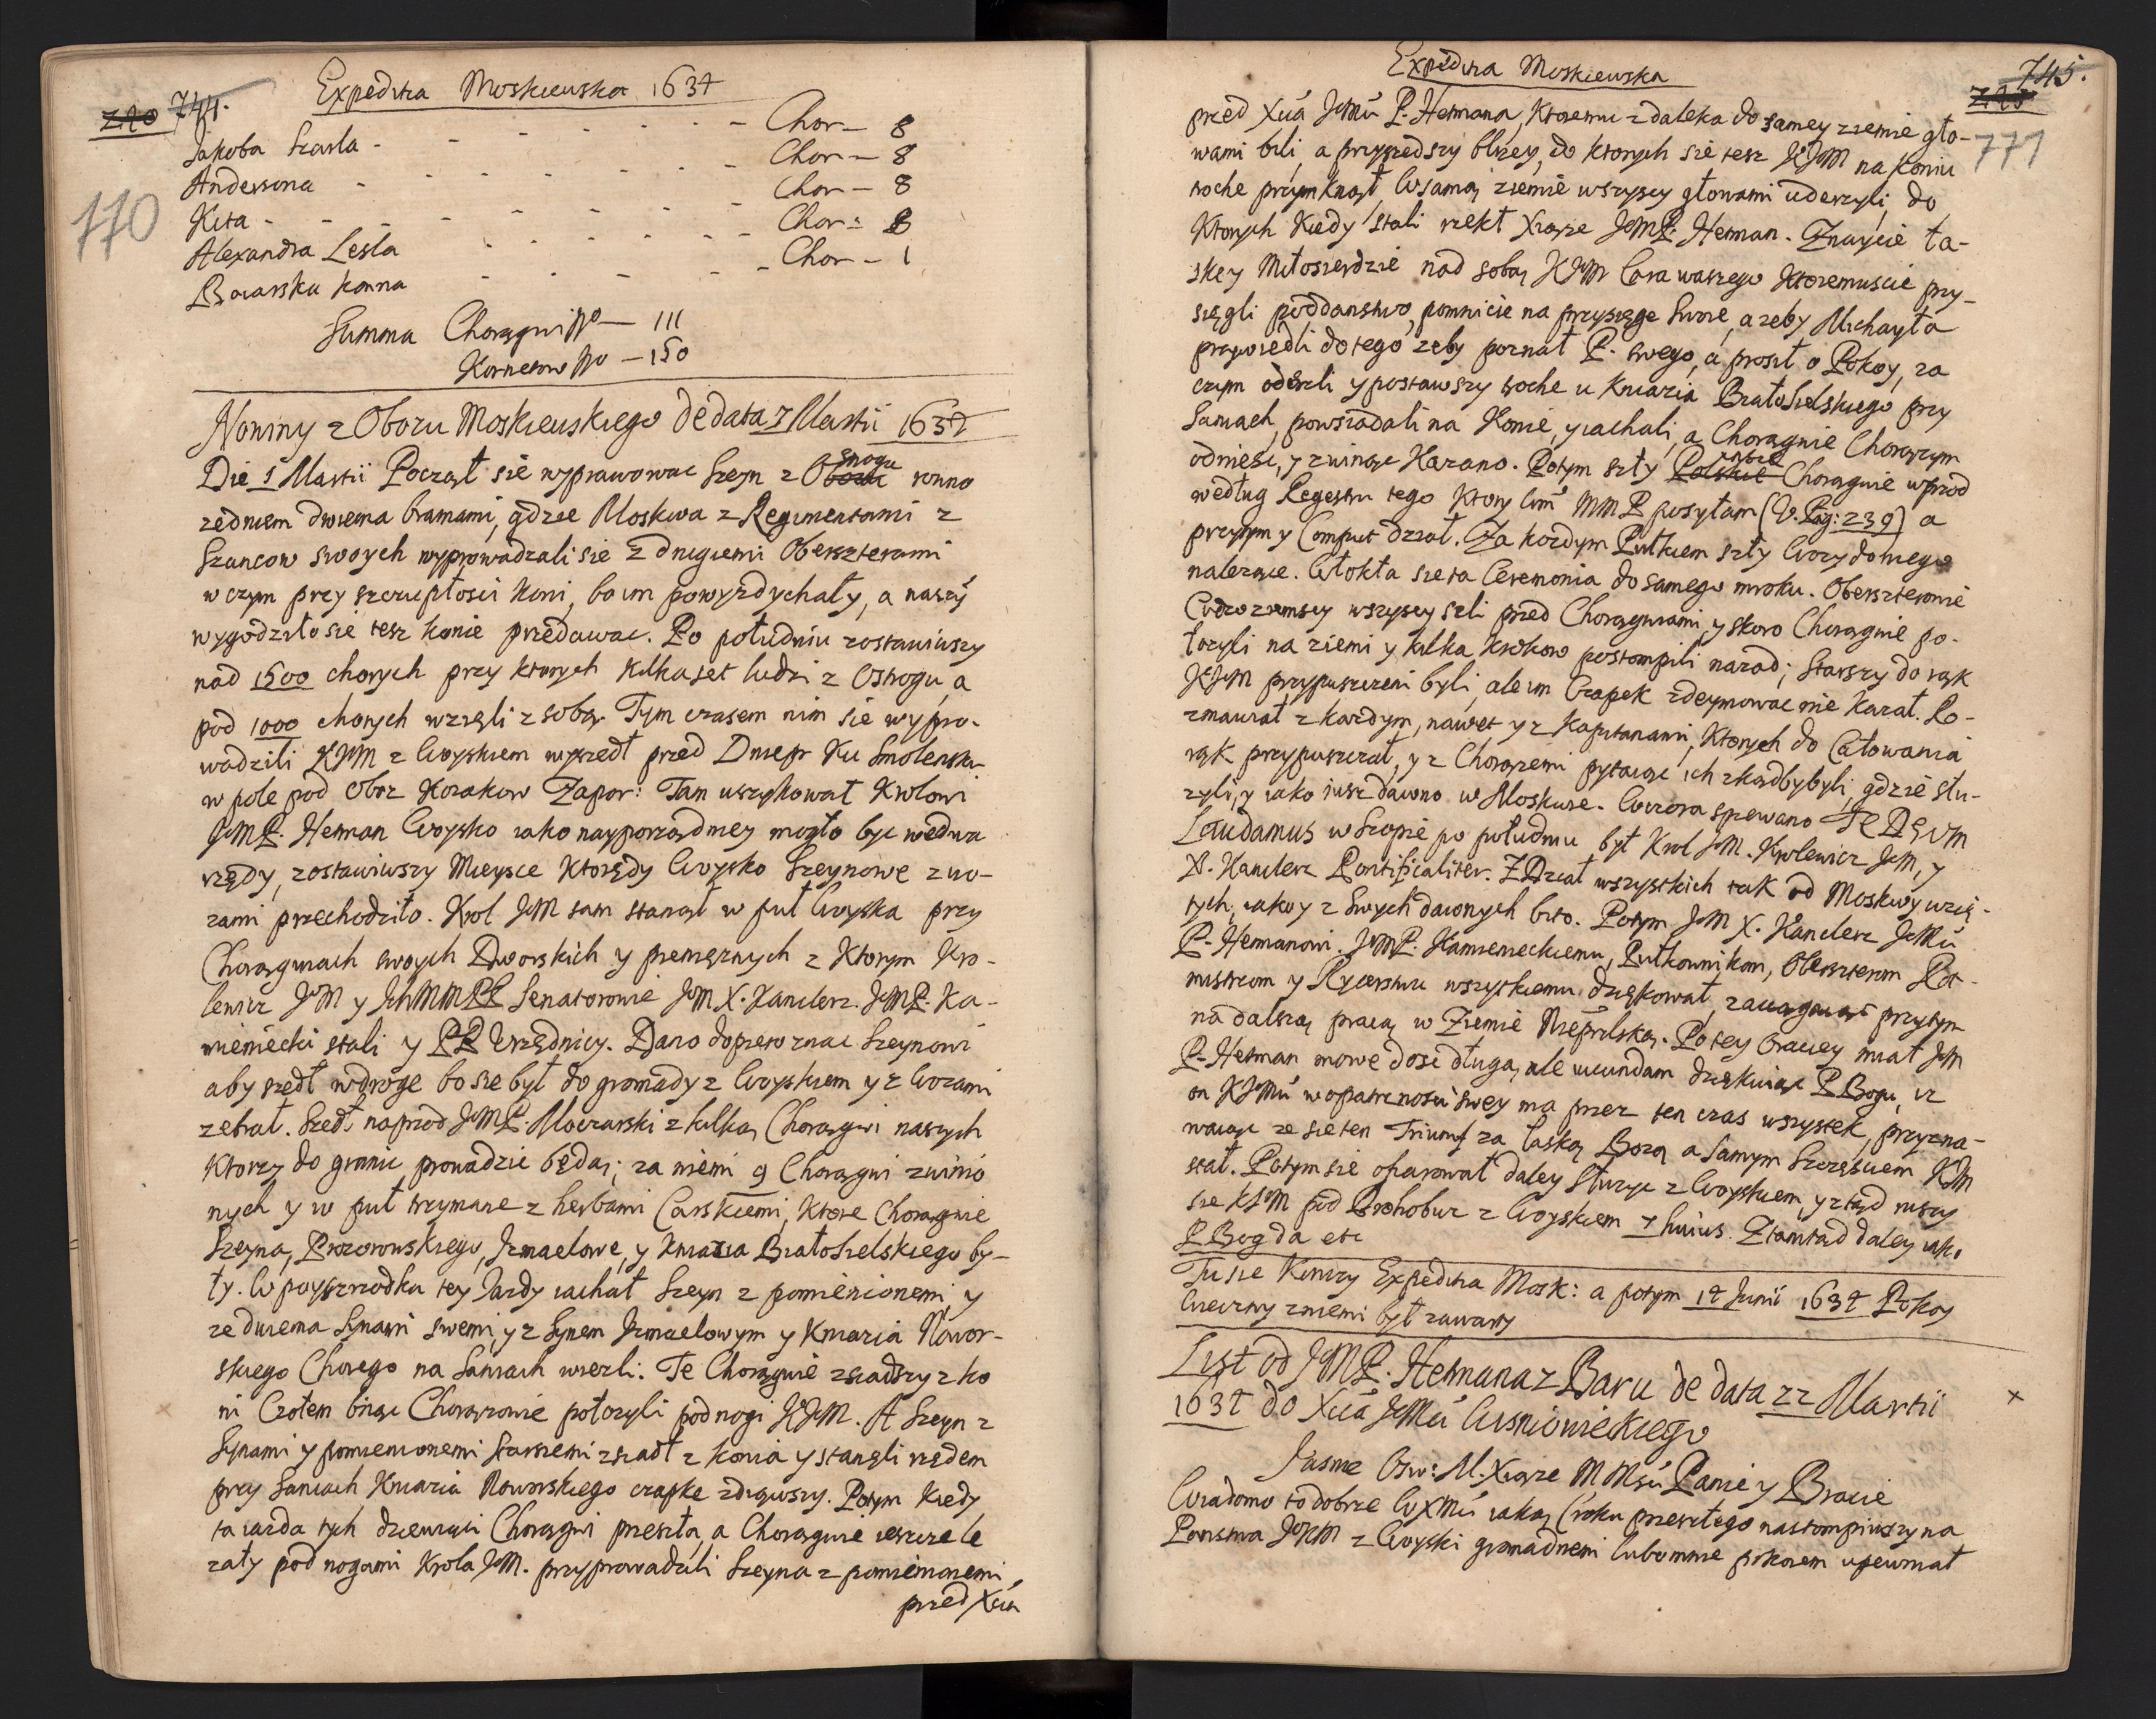 Expeditia Moskiewska 1634
240 744.
770
Jakoba Szarla - Chor - 8
Andersona - Chor - 8
Kita - Chor - 8
Alexandra Lesla Chor - 8
Boiarska konna - Chor - 1
Summa Chorągwi ppo - 111
Kornetow ppo - 150
Nowiny z Obozu Moskiewskiego de data 3 Martii 1634
Die 1 Martii Począł sie wyprawowac Szeyn z Ostrogu rowno
zedniem dwiema bramami, gdzie Moskwa z Regimentami z
Szancow swoych wyprowadzali sie z drugiemi Oberszterami
w czym przy szczupłosci koni, bo im powyzdychały, a naszy
wygodziło sie tesz konie przedawac. Po południu zostawiwszy
nad 1500 chorych przy ktorych kilkaset ludzi z Ostrogu, a
pod 1000 chorych wzięli z sobą. Tym czasem nim sie wypro-
wadzili KJM z Woyskiem wyszedł przed Dniepr ku Smolensku
w pole pod oboz Kozakow Zapor: Tam uszykował Krolowi
JeMP. Hetman Woysko iako nayporządniey mogło byc we dwa
rzędy, zostawiwszy Mieysce ktorędy Woysko Szeynowe z wo-
zami przechodziło. Krol JeM sam stanął w puł Woyska przy
Chorągwiach swoych Dworskich y pieniężnych z ktorym Kro-
lewicz JeM y JchMMPP Senatorowie JeM X. Kanclerz. JeMP. Ka-
mieniecki stali y PP Urzędnicy. Dano dopiero znac Szeynowi
aby szedł w drogę bo sie był do gromady z Woyskiem y z Wozami
zebrał. Szedł naprzod JeMP. Moczarski z kilką Chorągwi naszych
ktorzy do granic prowadzic będą; za niemi 9 Chorągwi zwinio
nych y w puł trzymane z herbami Carskiemi, ktore Chorągwie
Szeyna, Prozorowskiego, Izmaelowe, y kniazia Białosielskiego by-
ły. W poyszrzodku tey Jazdy iachał Szeyn z pomienionemi y
ze dwiema Synami swemi, y z Synem Izmaelowym y Kniazia Nowor-
skiego Chorego na Saniach wiezli. Te Chorągwie zsiadszy z ko
ni Czołem biiąc Chorążowie położyli pod nogi KJeM. A Szeyn z
Synami y pomienionemi Starszemi zsiadł z konia y stanęli rzędem
przy Saniach Kniazia Noworskiego czapke zdiąwszy. Potym kiedy
ta iazda tych dziewiąci Chorągwi przeszła, a Chorągwie ieszcze le
zały pod nogami Krola JeM. przyprowadzili Szeyna z pomienionemi
przed Xcia
Expeditia Moskiewska
745.
771
przed Xcia JeMci P. Hetmana, ktoremu z daleka do samey ziemie gło-
wami bili, a przyszedszy bliżey, do ktorych sie tesz KJeM na koniu
troche przymknął W samą ziemie wszyscy głowami uderzyli, do
ktorych kiedy stali rzekł Xiąże JeMP. Hetman. Znaycie ła-
skey Miłosierdzie nad sobą KJeM Cara waszego ktoremuscie przy-
sięgli poddanstwo, pomnicie na przysięge Swoie, a zeby Michayła
przywiedli do tego zeby poznał P. swego, a prosił o Pokoy, za
czym odeszli y postawszy troche u Kniazia Białosielskiego przy
Saniach, powsiadali na konie, y iachali, a Chorągwie Chorążym
odniesc, y zwinąc kazano. Potym szły insze Chorągwie wprzod
według Regestru tego ktory WM MMP posyłam (V. Pag: 239) a
przytym y Comput dział. Za kozdym Pułkiem szły Wozy do niego
należące. Wlokła sie ta Ceremonia do samego mroku. Oberszterowie
Cudzoziemscy wszyscy szli przed Chorągwiami, y skoro Chorągwie po-
łożyli na ziemi y kilka krokow postompili nazad; Starszy do rąk
KJeM przypuszczeni byli, ale im Czapek zdeymowac nie kazał. Ro-
zmawiał z kazdym, nawet y z kapitanami, ktorych do Całowania
rąk przypuszczał, y z Chorążemi pytaiąc ich zkądby byli, gdzie słu-
żyli, y iako iusz dawno w Moskwie. Wczora spiewano Te Deum
Laudamus w Szopie po południu był Krol JeM. Krolewicz JeM, y
X. Kanclerz Pontificaliter. Z Dział wszystkich tak od Moskwy wzię-
tych, iako y z Swych dawnych bito. Potym JeM X. Kanclerz JeMci
P. Hetmanowi. JeMP. Kamienieckiemu, Pułkownikom, Oberszterom Rot-
mistrzom y Rycerstwu wszystkiemu dziękował, zaciągaiąc przytym
na dalszą pracą w Ziemie Nieprzilską. Po tey Oraciey miał JeM
P. Hetman mowe dosc długą, ale iucundam dziękuiąc P Bogu, iz
on KJeMci w opatrznosci swey ma przez ten czas wszystek, przyzna-
waiąc ze sie ten Triumf za łaską Bożą a samym Szczęsciem KJM
stał. Potym sie ofiarował daley służyc z Woyskiem, y ztąd ruszy
sie KJeM pod Drohobuz z Woyskiem 7 huius. Ztamtad daley iako
P Bog da etc
Tu sie konczy Expeditia Mosk: a potym 14 Junii 1634 Pokoy
Wieczny z niemi był zawarty
List od JeMP. Hetmana z Baru de data 22 Martii
1634 do Xcia JeMci Wisniowieckiego
Jasnie Osw: M. Xiąże M Mści Panie y Bracie
Wiadomo to dobrze WXMci iaką (roku przeszłego nastompiwszy na
Panstwa JKM z Woyski gromadnemi Lubo mnie pokoiem upewniał